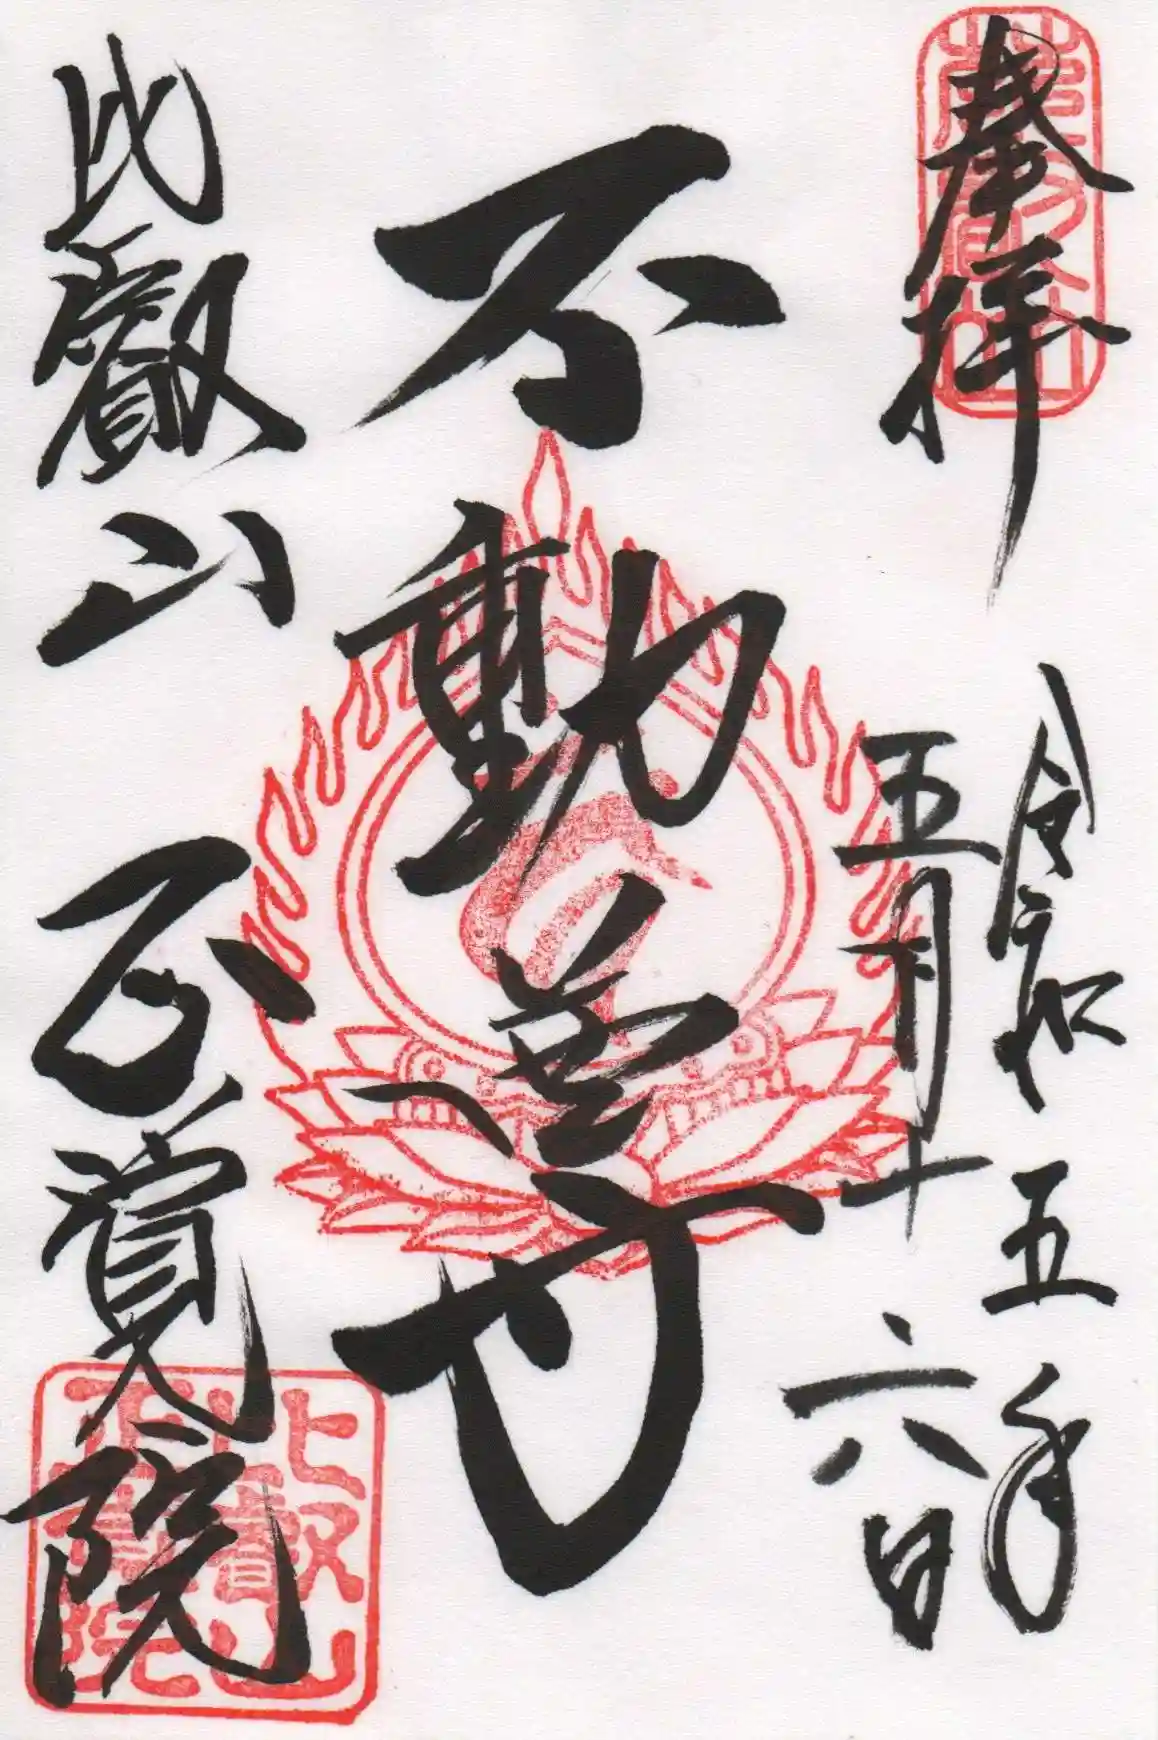 奉拝
令和五年
五月十六日
不動尊
比叡山
正覚院
比叡山
正覚院